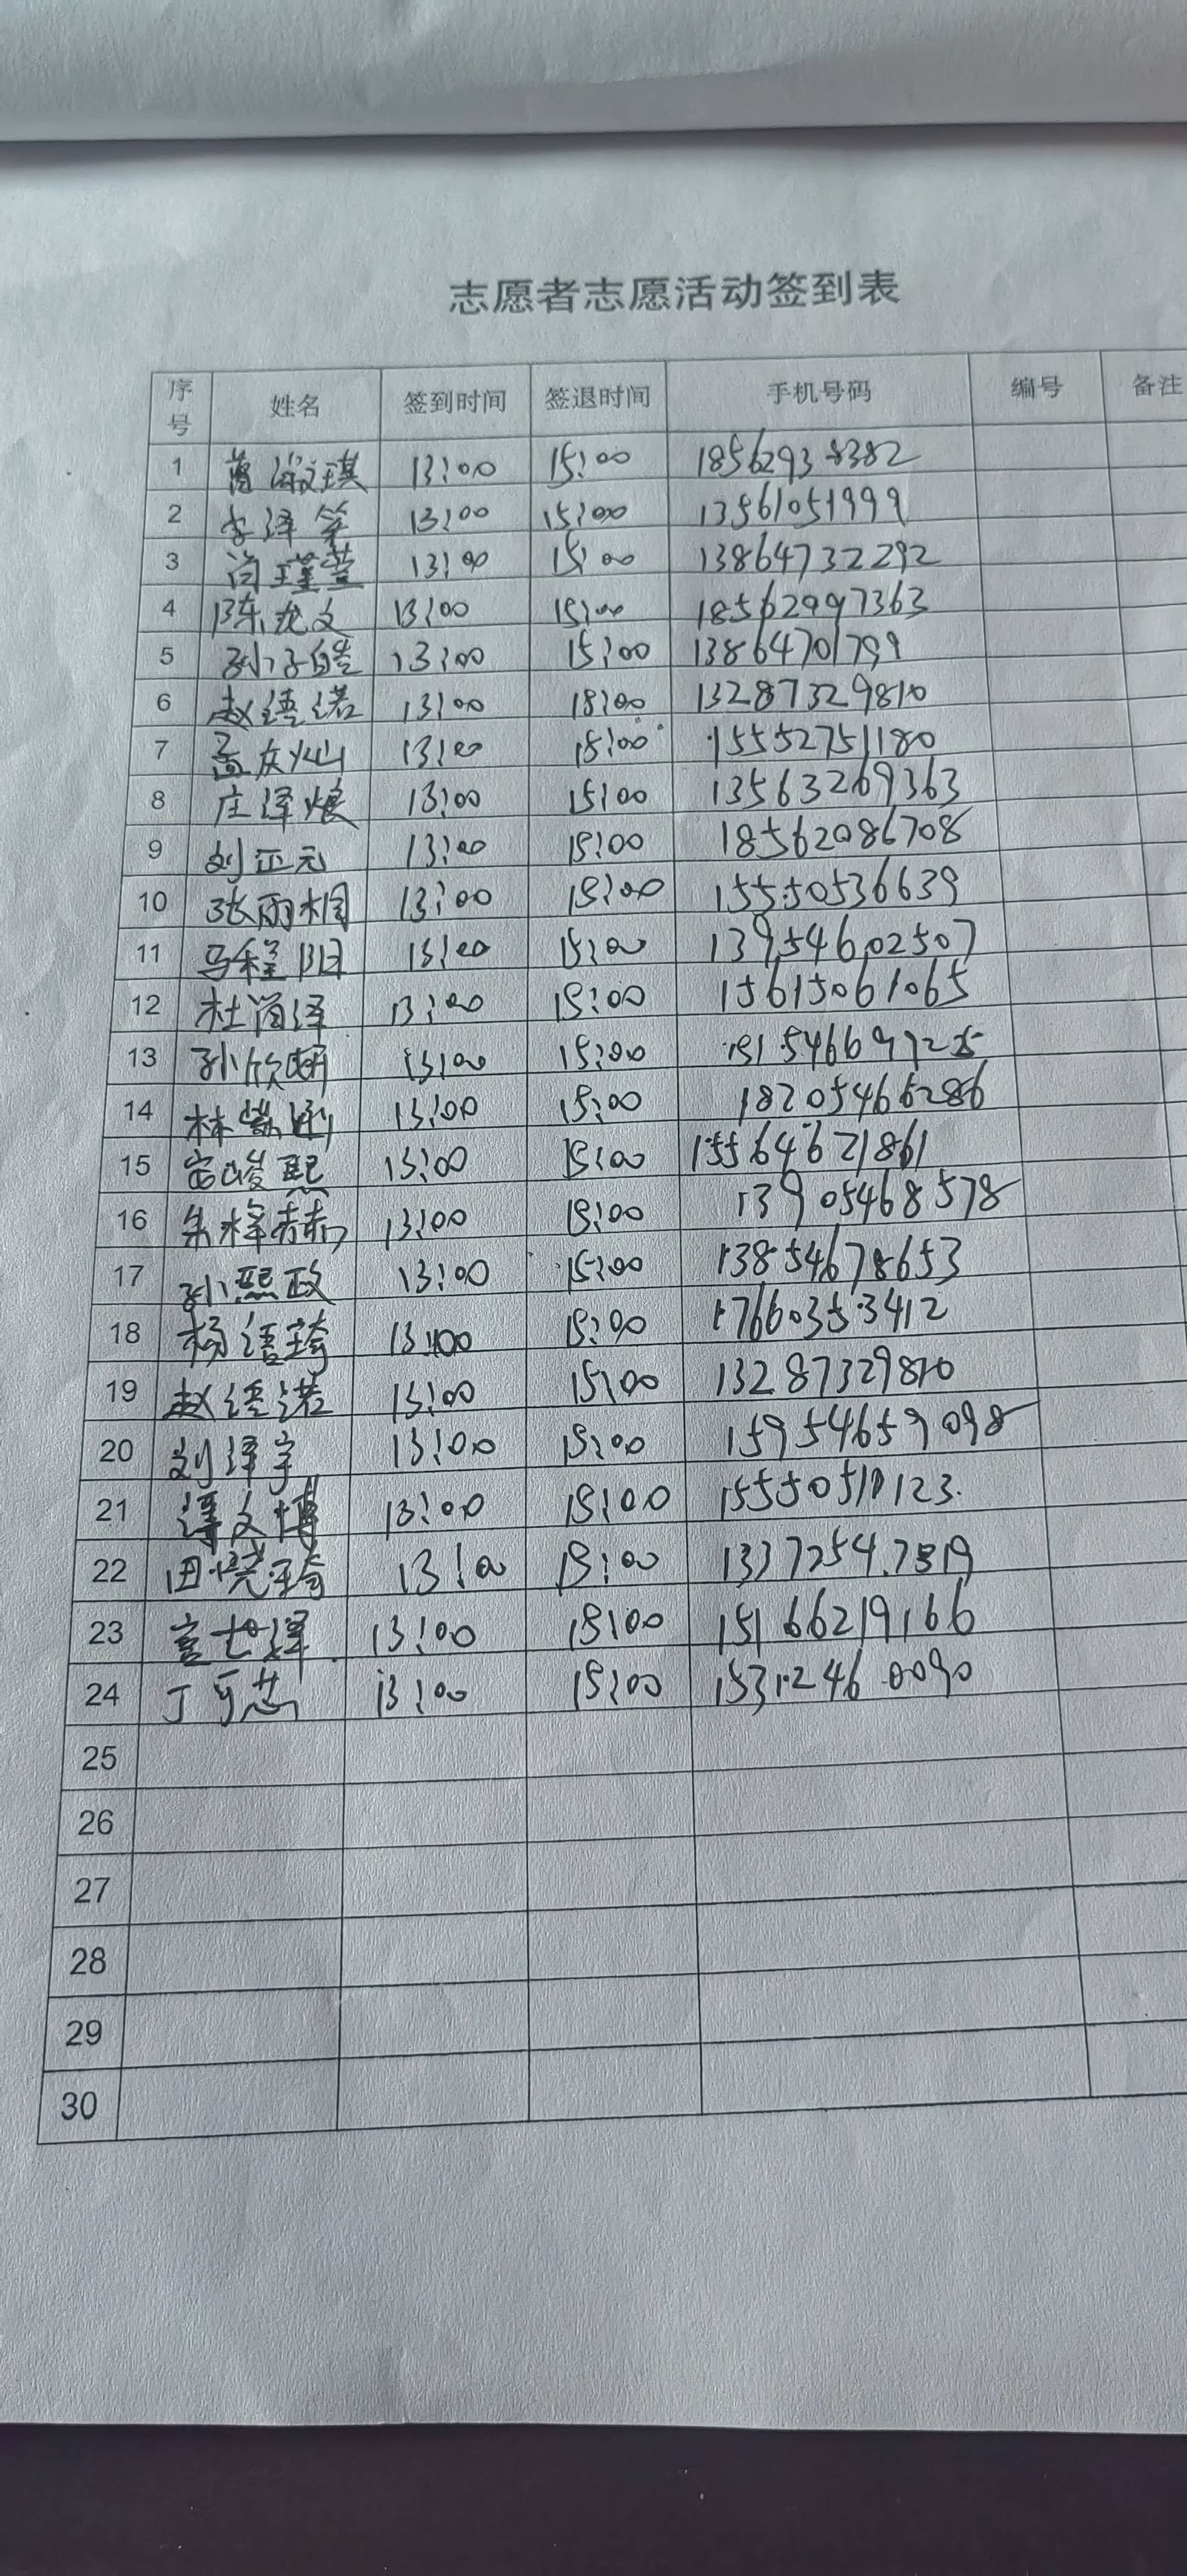 志愿者志愿活动签到表
序号 姓名 签到时间 签退时间 手机号码 编号 备注
1 13:00 15:00 18562938382
2 李泽 13:00 15:00 13561051999
3 尚瑾萱 13:00 15:00 13864732292
4 陈龙文 13:00 15:00 18562997363
5 孙子皓 13:00 15:00 13864701799
6 赵语诺 13:00 15:00 13287329810
7 孟庆灿 13:00 15:00 15552751180
8 庄泽烺 13:00 15:00 13563269363
9 刘正元 13:00 15:00 18562086708
10 张雨桐 13:00 15:00 15550536639
11 马程阳 13:00 15:00 13954602507
12 杜尚泽 13:00 15:00 15615061065
13 孙欣妍 13:00 15:00
14 林紫涵 13:00 15:00 18205466286
15 峻熙 13:00 15:00 15564621861
16 朱梓赫 13:00 15:00 13905468578
17 孙熙政 13:00 15:00 13854678653
18 杨语琦 13:00 15:00 17660353412
19 赵语诺 13:00 15:00 13287329810
20 刘泽宇 13:00 15:00 15954659098
21 谭文博 13:00 15:00 15550510123
22 田晓琦 13:00 15:00 13372547519
23 13:00 15:00 15166219166
24 丁可芯 13:00 15:00 15312460090
25
26
27
28
29
30